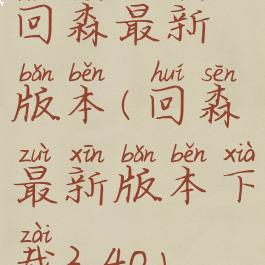 回森最新
bǎn běn huí sēn
版本(回森
zuì xīn bǎn běn xià
最新版本下
zài
载3.40)